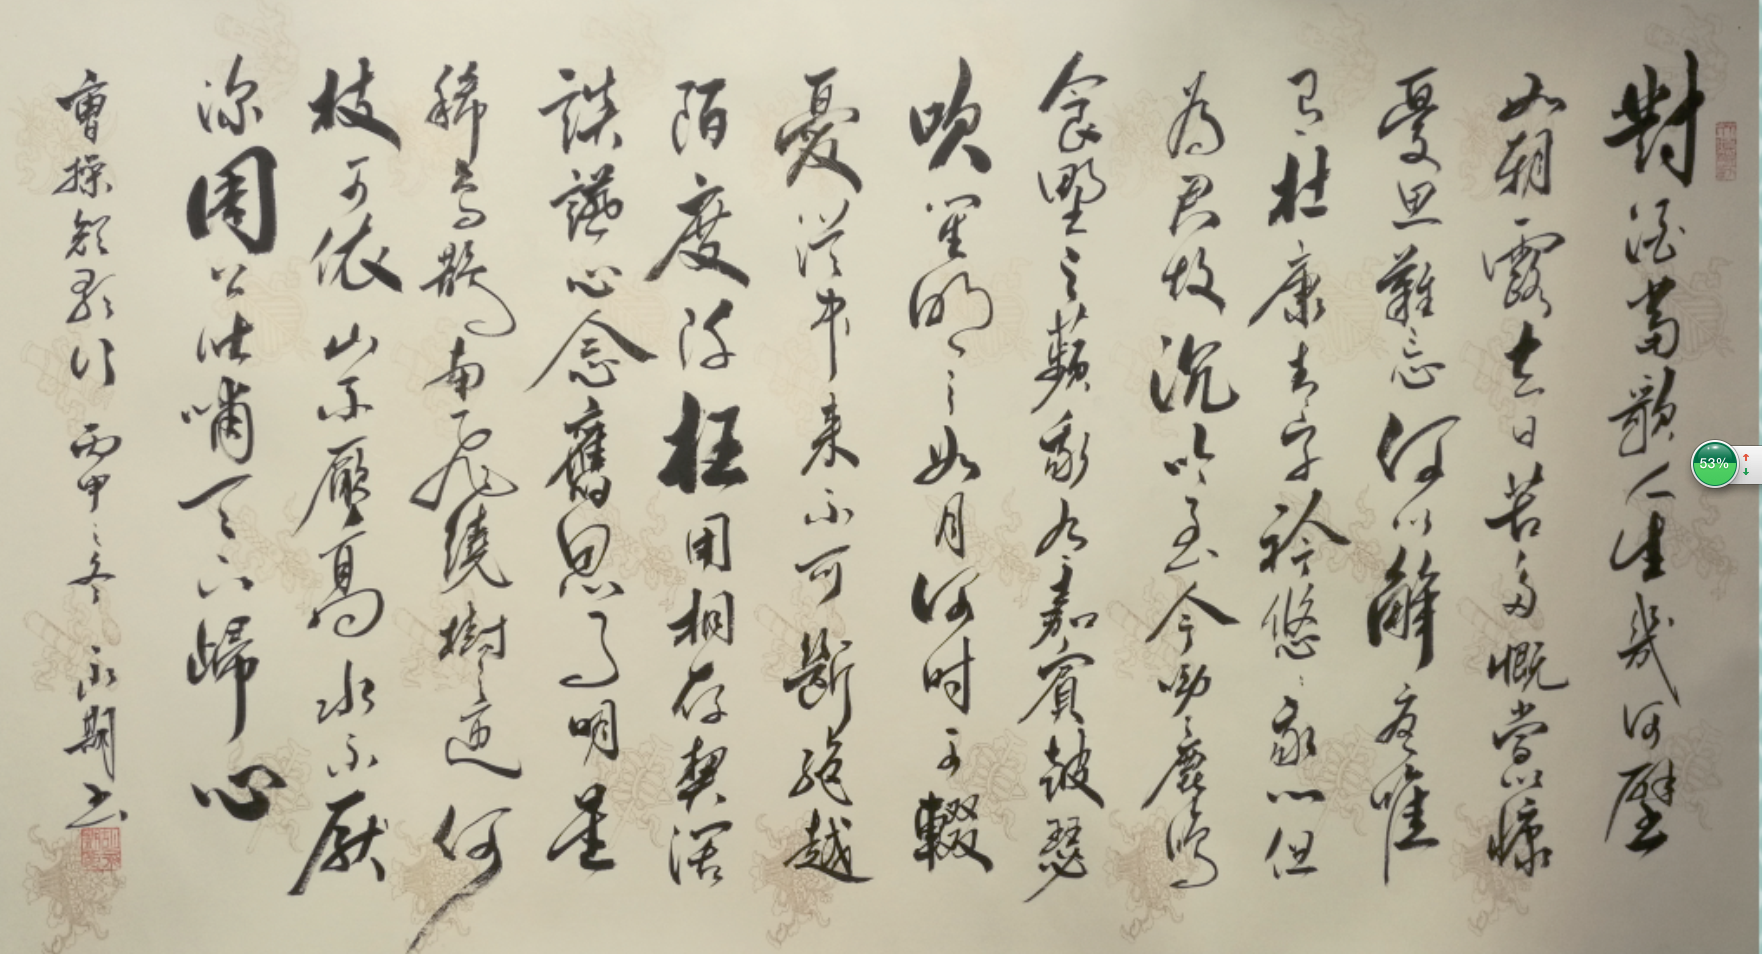 對酒當歌人生幾何譬
如朝露去日苦多慨當以慷
憂思難忘何以解憂唯
有杜康青々子衿悠々我心但
為君故沉吟至今呦々鹿鳴
食野之蘋我有嘉賓鼓瑟
吹笙明明々如月何時可輟
憂從中來不可斷絕越
陌度阡枉用相存契闊
談讌心念舊恩月明星
稀烏鵲南飛繞樹三匝何
枝可依山不厭高水不厭
深周公吐哺天下歸心
曹操短歌行 丙申之冬 永期書
53%